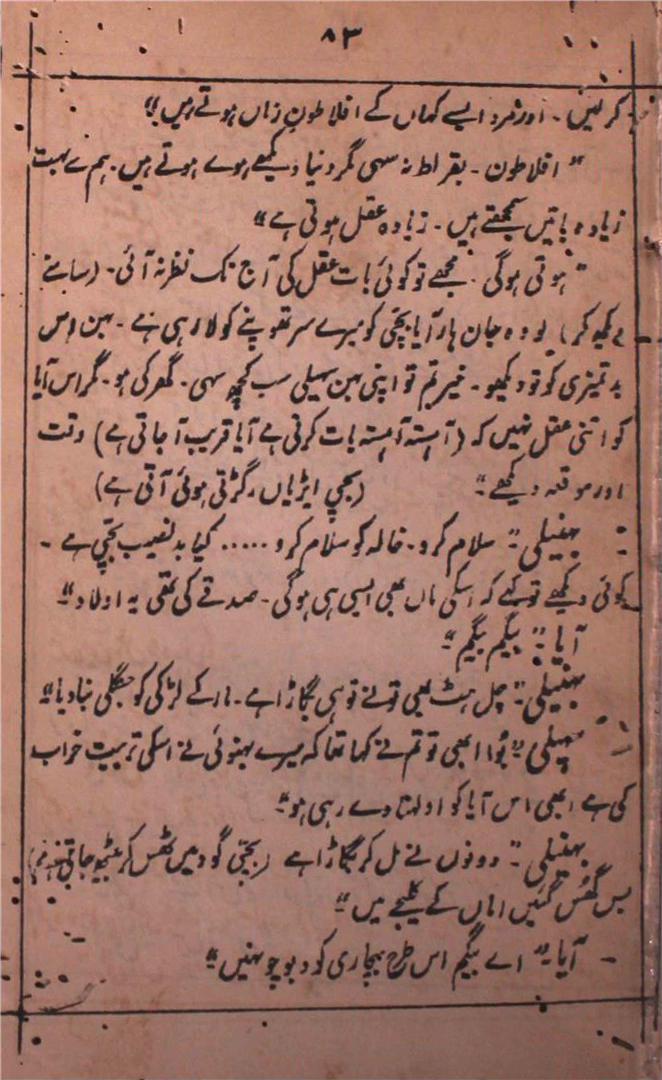 ۸۳
کر لیں ۔ اور مرد ایسے کہاں کے افلاطونِ زماں ہوتے ہیں ۔"
"افلاطون ۔ بقراط نہ سہی مگر دنیا دیکھے ہوے ہوتے ہیں ۔ ہم سے بہت
زیادہ باتیں سمجھتے ہیں ۔ زیادہ عقل ہوتی ہے"
"ہوتی ہوگی ۔ مجھے تو کوئی بات عقل کی آج تک نظر نہ آئی ۔ (سامنے
دیکھ کر) لو وہ جان ہار آیا بچّی کو میرے سر تھوپنے کو لا رہی ہے ۔ بہن اس
بدتمیزی کو تو دیکھو ۔ خیر تم تو اپنی بہن سہیلی سب کچھ سہی ۔ گھر کی ہو ۔ مگر اس آیا
کو اتنی عقل نہیں کہ (آہستہ آہستہ بات کرتی ہے آیا قریب آ جاتی ہے) وقت
اور موقعہ دیکھے ۔" (بچی ایڑیاں رگڑتی ہوئی آتی ہے)
بہنیلی :" سلام کرو ۔ خالہ کو سلام کرو ..... کیا بدنصیب بچّی ہے ۔
کوئی دیکھے تو کہے کہ اسکی ماں بھی ایسی ہی ہوگی ۔ صدقے کی تھی یہ اولاد"
آیا :" بیگم بیگم"
بہنیلی :" چل ہٹ بھی تو نے تو ہی بگاڑا ہے ۔ مار کے لڑکی کو جنگلی بنا دیا"
سہیلی :" بُوا ابھی تو تم نے کہا تھا کہ میرے بہنوئی نے اسکی تربیت خراب
کی ہے ابھی اس آیا کو اولہنا دے رہی ہو"
بہنیلی :" دونوں نے مل کر بگاڑا ہے (بچّی گود میں ٹھس کر بیٹھ جاتی ہے)
بس گھس گئیں اماں کے کلیجے میں"
آیا ۔" اے بیگم اس طرح بیچاری کو دبوچو نہیں"